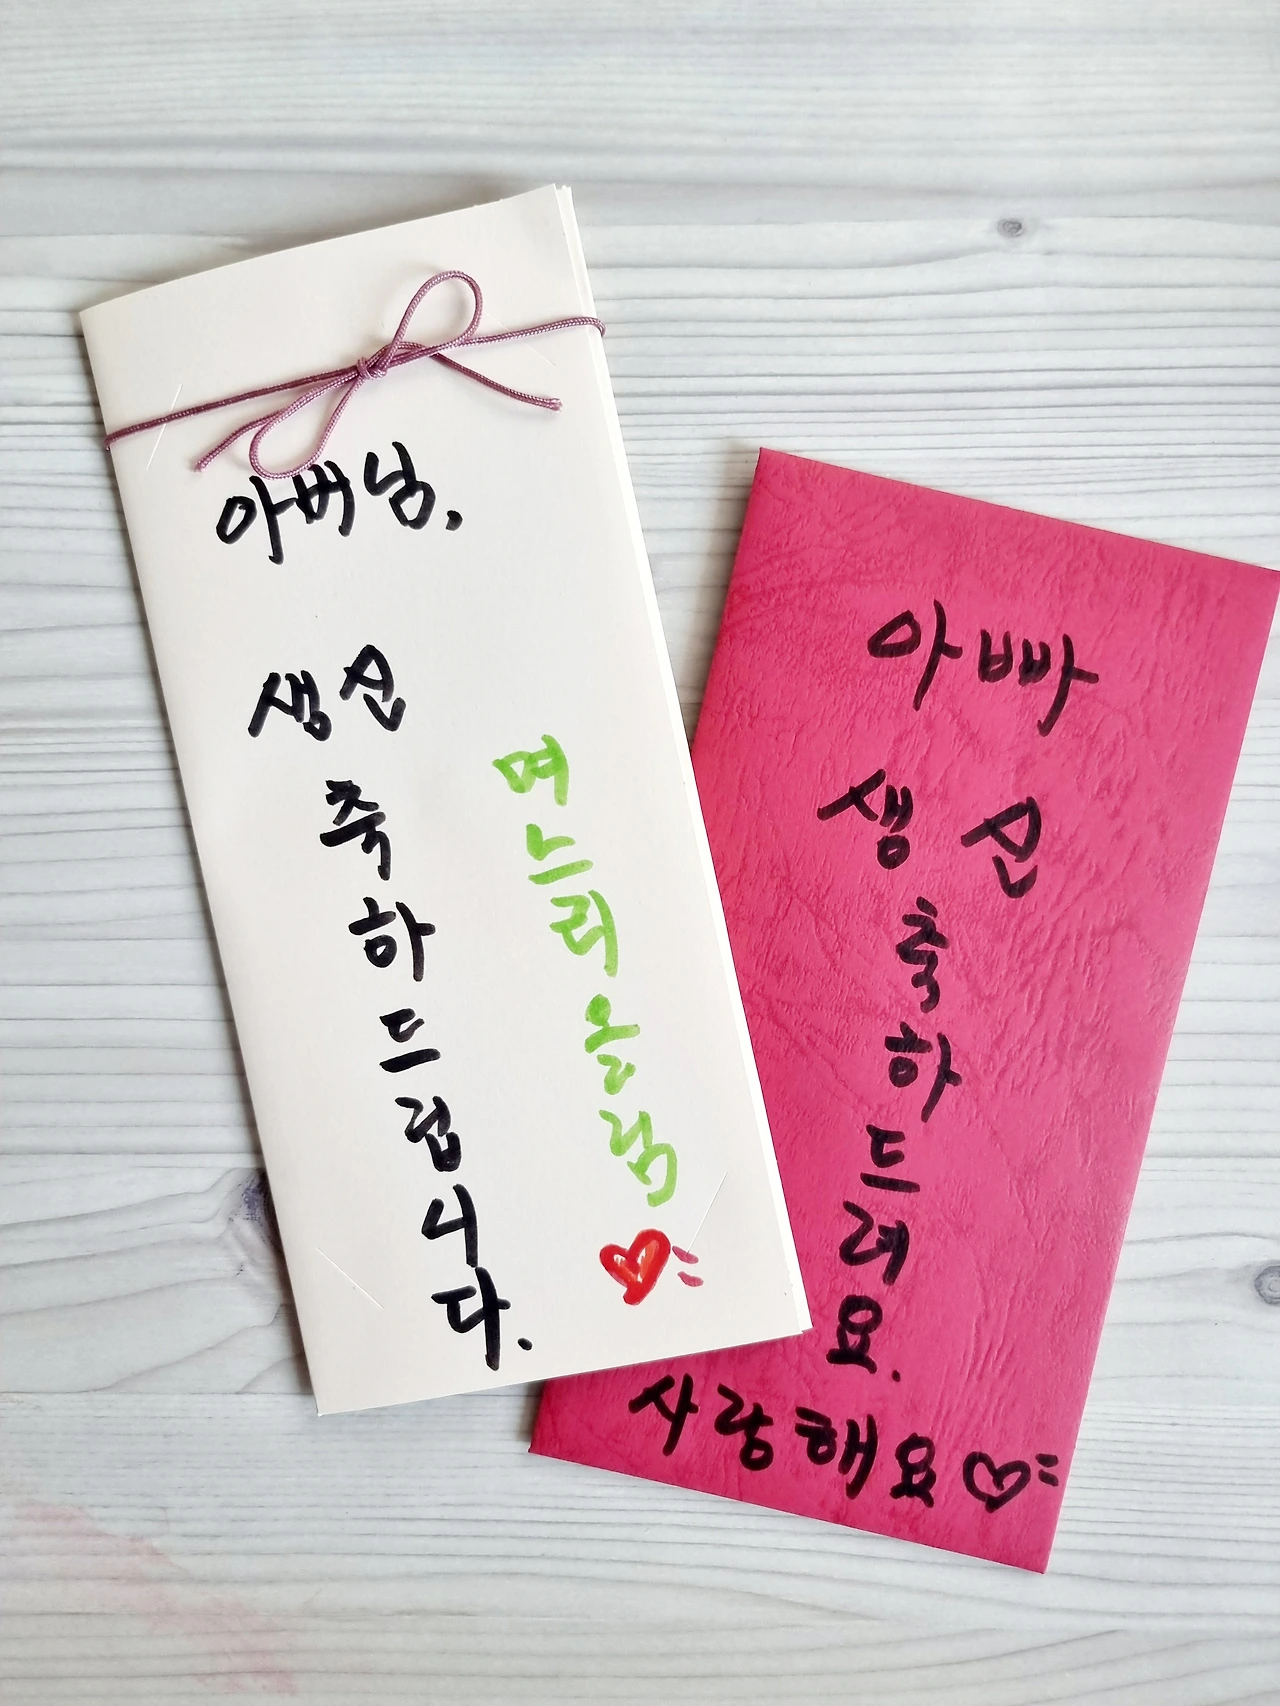 아버님,
생신
축하드립니다.
며느리올림
아빠
생신
축하드려요.
사랑해요